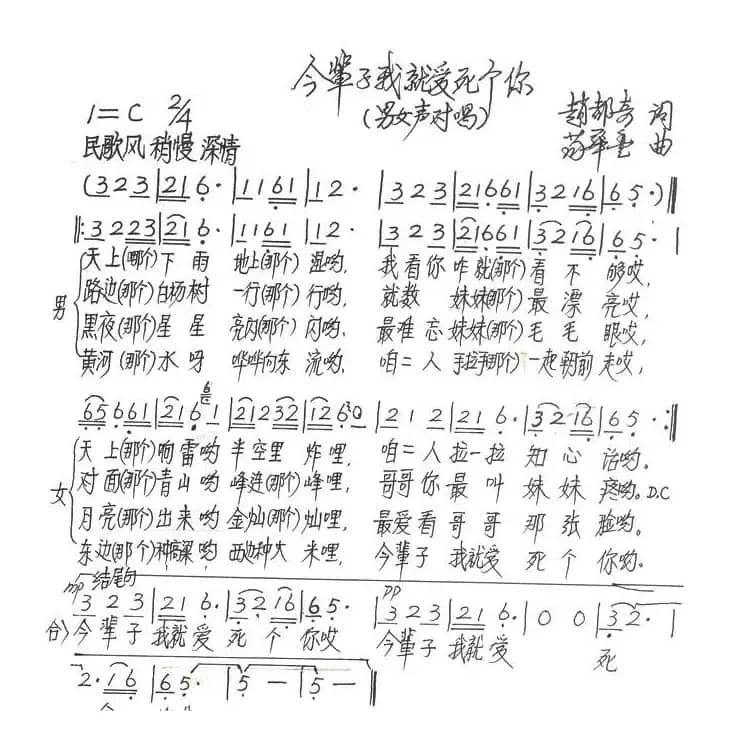 今辈子我就爱死个你
(男女声对唱)
1=C 2/4
赵都奇 词
民歌风 稍慢 深情
曲
(323|216·|1161|12·|323|21661|3216|65·)‖
‖:3223|216·|1161|12·|323|21661|3216|65·|
男
天上(哪个)下雨 地上(那个)湿哟, 我看你咋就(那个)看不够哎,
路边(那个)白杨树 一行(那个)行哟, 就数妹妹(那个)最漂亮哎,
黑夜(那个)星星 亮闪(那个)闪哟, 最难忘妹妹(那个)毛毛眼哎,
黄河(那个)水呀 哗哗向东流哟, 咱二人手拉手(那个)一起朝前走哎,
65661|2161|21232|126|212|216·|3216|65·:‖
女
天上(那个)响雷哟 半空里炸哩, 咱二人拉一拉知心话哟。
对面(那个)青山哟 峰连(那个)峰哩, 哥哥你最叫妹妹疼哟。D.C
月亮(那个)出来哟 金灿(那个)灿哩, 最爱看哥哥那张脸哟。
东边(那个)种高粱哟 西边种大米哩, 今辈子我就爱死个你哟。
结尾句
mp pp
323|216·|3216|65·|323|216·|00|32·|
合〉今辈子我就爱死个你哎 今辈子我就爱 死
2·16|65·|5—|5—‖